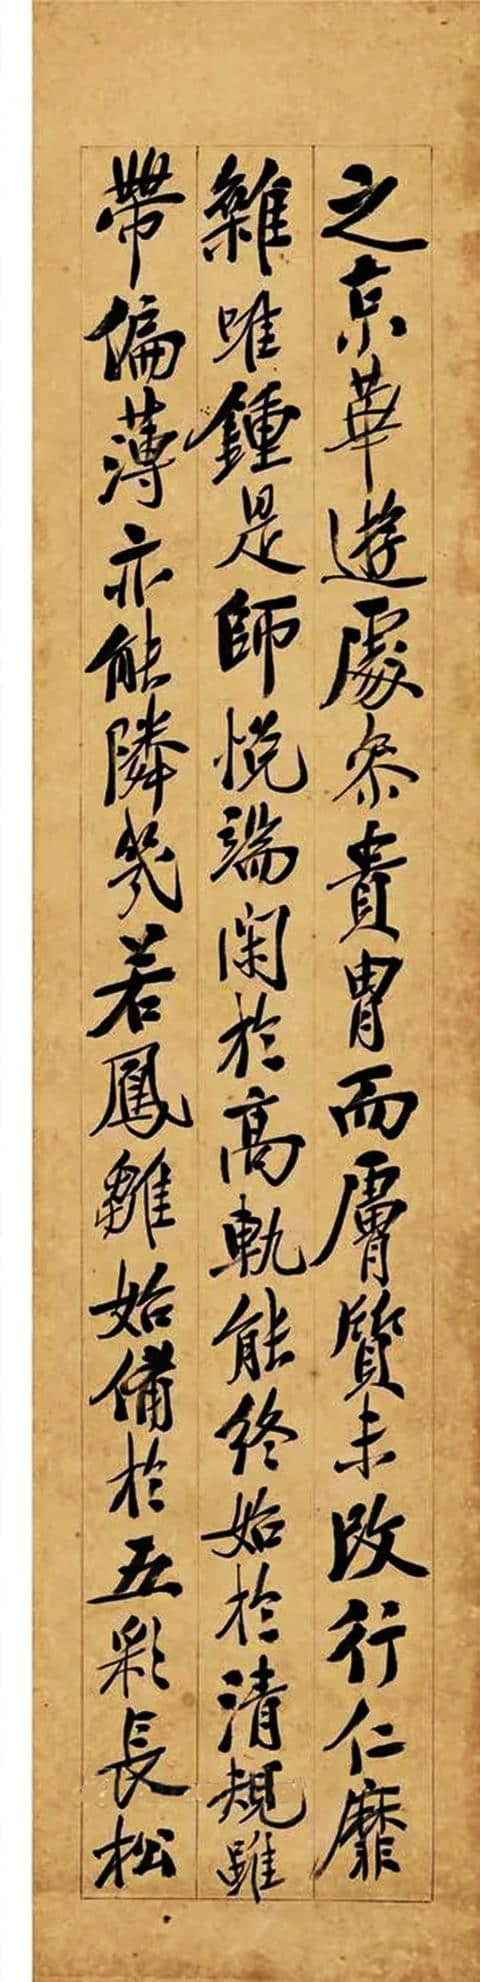 之京華遊處參貴胄而膚質未改行仁靡
雜唯鍾是師悅端閑於高軌能終始於清規雖
帶偏薄亦能隣幾若鳳雛始備於五彩長松